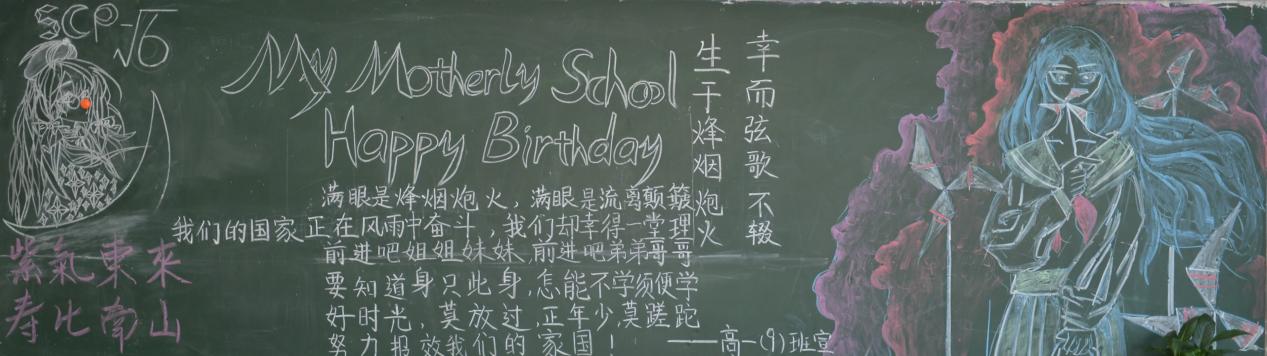 SCP √6
My Motherly School
Happy Birthday
生于烽烟炮火
幸而弦歌不辍
满眼是烽烟炮火，满眼是流离颠簸
我们的国家正在风雨中奋斗，我们却幸得一堂理
前进吧姐姐妹妹，前进吧弟弟哥哥
要知道身只此身，怎能不学须便学
好时光，莫放过，正年少，莫蹉跎
努力报效我们的家国！
——高一(9)班宣
紫氣東來
寿比南山